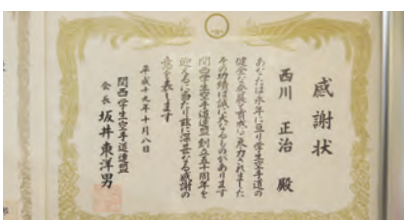 感謝状
西川 正治 殿
あなたは永年に亘り学生空手道の
健全な発展と育成に尽力されました
その功績は誠に大なるものがあります
関西学生空手道連盟創立五十周年を
迎えるに当たり茲に深甚なる感謝の
意を表します
平成十九年十月八日
関西学生空手道連盟
会長 坂井東洋男